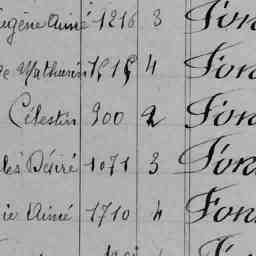 Eugène Aimé 1216 3 Fon
Mathurin 1515 4 Fon
Célestin 900 2 Fon
Désiré 1071 3 Fon
Aimé 1710 4 Fon